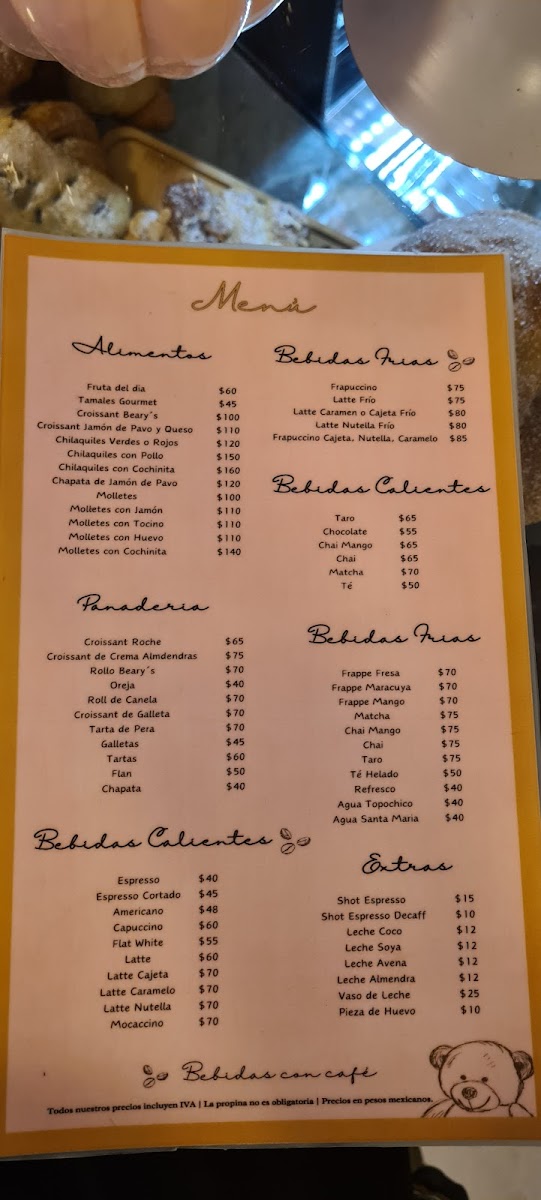 Menú
Alimentos
Fruta del dia $60
Tamales Gourmet $45
Croissant Beary´s $100
Croissant Jamón de Pavo y Queso $110
Chilaquiles Verdes o Rojos $120
Chilaquiles con Pollo $150
Chilaquiles con Cochinita $160
Chapata de Jamón de Pavo $120
Molletes $100
Molletes con Jamón $110
Molletes con Tocino $110
Molletes con Huevo $110
Molletes con Cochinita $140
Panaderia
Croissant Roche $65
Croissant de Crema Almdendras $75
Rollo Beary´s $70
Oreja $40
Roll de Canela $70
Croissant de Galleta $70
Tarta de Pera $70
Galletas $45
Tartas $60
Flan $50
Chapata $40
Bebidas Calientes
Espresso $40
Espresso Cortado $45
Americano $48
Capuccino $60
Flat White $55
Latte $60
Latte Cajeta $70
Latte Caramelo $70
Latte Nutella $70
Mocaccino $70
Bebidas Frias
Frapuccino $75
Latte Frío $75
Latte Caramen o Cajeta Frío $80
Latte Nutella Frío $80
Frapuccino Cajeta, Nutella, Caramelo $85
Bebidas Calientes
Taro $65
Chocolate $55
Chai Mango $65
Chai $65
Matcha $70
Té $50
Bebidas Frias
Frappe Fresa $70
Frappe Maracuya $70
Frappe Mango $70
Matcha $75
Chai Mango $75
Chai $75
Taro $75
Té Helado $50
Refresco $40
Agua Topochico $40
Agua Santa Maria $40
Extras
Shot Espresso $15
Shot Espresso Decaff $10
Leche Coco $12
Leche Soya $12
Leche Avena $12
Leche Almendra $12
Vaso de Leche $25
Pieza de Huevo $10
Bebidas con café
Todos nuestros precios incluyen IVA | La propina no es obligatoria | Precios en pesos mexicanos.